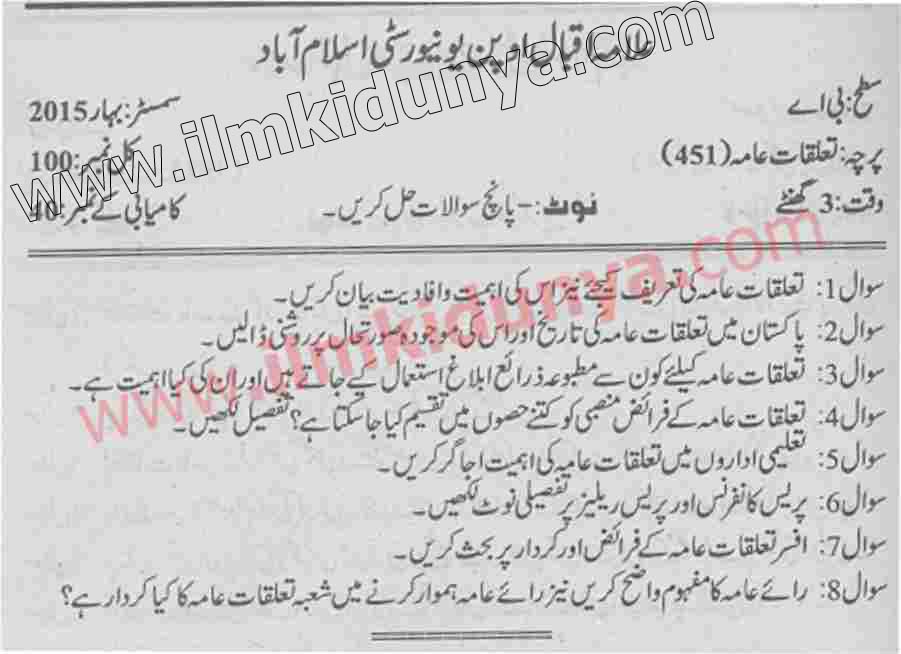 علامہ اقبال اوپن یونیورسٹی اسلام آباد
سطح: بی اے
سمسٹر: بہار 2015
پرچہ: تعلقات عامہ (451)
کل نمبر: 100
وقت: 3 گھنٹے
نوٹ:- پانچ سوالات حل کریں۔
کامیابی کے نمبر: 40
سوال 1: تعلقات عامہ کی تعریف کیجئے نیز اس کی اہمیت و افادیت بیان کریں۔
سوال 2: پاکستان میں تعلقات عامہ کی تاریخ اور اس کی موجودہ صورتحال پر روشنی ڈالیں۔
سوال 3: تعلقات عامہ کیلئے کون سے مطبوعہ ذرائع ابلاغ استعمال کیے جاتے ہیں اور ان کی کیا اہمیت ہے۔
سوال 4: تعلقات عامہ کے فرائض منصبی کو کتنے حصوں میں تقسیم کیا جا سکتا ہے؟ تفصیل لکھیں۔
سوال 5: تعلیمی اداروں میں تعلقات عامہ کی اہمیت اجاگر کریں۔
سوال 6: پریس کانفرنس اور پریس ریلیز پر تفصیلی نوٹ لکھیں۔
سوال 7: افسر تعلقات عامہ کے فرائض اور کردار پر بحث کریں۔
سوال 8: رائے عامہ کا مفہوم واضح کریں نیز رائے عامہ ہموار کرنے میں شعبہ تعلقات عامہ کا کیا کردار ہے؟
www.ilmkidunya.com
www.ilmkidunya.com